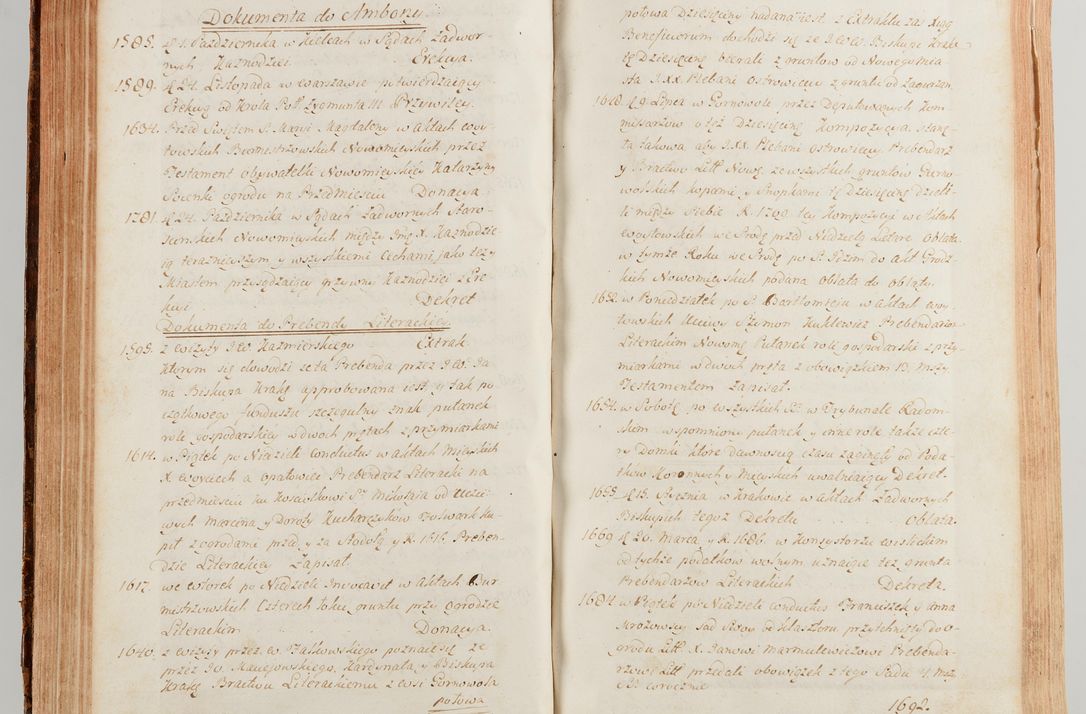 Dokumenta do Ambony.
1585. d. 1. Października w Kielcach w Sądach Zadwor-
nych Kaznodziei Erekcya.
1589. d. 24. Listopada w Warszawie potwierdzaiący
Erekcyą od Króla Pol. Zygmunta III. Przywiley.
1634. Przed Swiętem S. Maryi Magdaleny w Aktach Woy-
towskich Burmistrzowskich Nowomieyskich przez
Testament obywatelki Nowomieyskiey Katarzyny
ogrodu na Przedmieściu Donacya.
1781. d. 24. Pazdziernika w Sądach Zadwornych Staro-
Nowomieyskich między Jmę X. Kaznodzie-
ią teraznieyszym, y wszystkiemi Cechami jako też y
Miastem przysądzaiący grzywny Kaznodziei Ere-
kcyi. Dekret
Dokumenta do Prebendy Literackiey.
1595. z wizyty J.W. Kazmierskiego Extrak.
Ktorym się dowodzi że ta Prebenda przez J.W. Ja-
na Biskupa Krakę approbowana iest, y tak po
czątkowego funduszu szczegulny znak pułanek
role gospodarskiey wdwoch prętach z przymiarkami
1614. w Piątek po Niedziele Conductus w aktach Mieyskich
X. Woyciech a Opatowiec Prebendarz Literacki na
przedmieściu ku Kosciołkowi S. Mikołaja od Ucżci-
wych Marcina y Doroty Kucharczyków Folwark ku-
pił z ogrodami przed, y za Stodołą y R. 1616. Preben-
dzie Literackiey Zapisał.
1617. we Wtorek po Niedziele Invocavit w Aktach Bur
mistrzowskich Czterech gruntu przy ogrodzie
Literackim Donacya.
1640. z wizyty przez W. poznaiesię że
przez Jo. Maciejowskiego, Kardynała, y Biskupa
Krakę Bractwu Literackiemu z wsi Gornowola
połowa
połowa Dziesięciny nadana iest, z Extraktu zaś Xiąg
Beneficiorum dochodzi się że J.W.W. Biskupi Krak.
tę Dziesięcinę wybrali z gruntow od Nowego Mia-
sta J.XX. Plebani Ostrowieccy z gruntu od
1618. d. 9. Lipca w Gornowole przez Deputowanych Kom-
missarzow o też Dziesięcinę Kompozycya. Stanę-
ła takowa aby J.XX. Plebani Ostrowieccy, Prebendarz
y Bractwo Litt: Nowę. ze wszystkich gruntów Gorno-
wolskich kopami y Snopkami tę Dziesięcinę dzieli-
li między Siebie. R. 1700 tey Kompozycyi w Aktach
we Srodę przed Niedzielą Lætare Oblata.
w tymże Roku we Srodę po S. Idzim do akt Grodz-
kich Nowomieyskich podana oblata do oblaty.
1652. w Poniedziałek po S. Bartłomieju w Aktach Woy-
towskich Uczciwy Szymon Kuklewicz Prebendariu
Literackim Nowomę Pułanek role gospodarskie z przy-
miarkami wdwoch pręta z obowiązkiem 13. mszy
Testamentem Zapisał.
1654. w Sobotę po Wszystkich SS. w Trybunale Radom-
skim wspomniony pułanek y inne role także czte-
ry Domki które dawnością czasu zaginęły od Poda-
tków Koronnych y Mieyskich uwalniaiący Dekret.
1655. d. 15. Stycznia w Krakowie w aktach Zadwornych
Biskupich tegoż Dekretu Oblata.
1669. d. 20. Marca, y R. 1686. w Konsystorzu
od tychże podatkow wolnym uznaiąc też grunta
Prebendarzow Literackich Dekreta.
1684. w Piątek po Niedziele conductus Franciszek y Anna
Mrozowscy Sad Swoy od Klasztoru przytchnięty do o-
grodu Litt. X. Janowi Marmulewiczowi Prebenda-
rzowi Litt: przedali obowiązek z tego Sadu 4. Mszy
SS. corocznie.
1692.